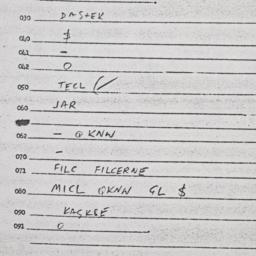 030 DASTEK
040 $
041 -
042 0
050 TECL
060 JAR
062 - @ KNW
070 -
071 FILC FILCERNE
080 MICL GKNN GL $
090 KACKBE
091 0